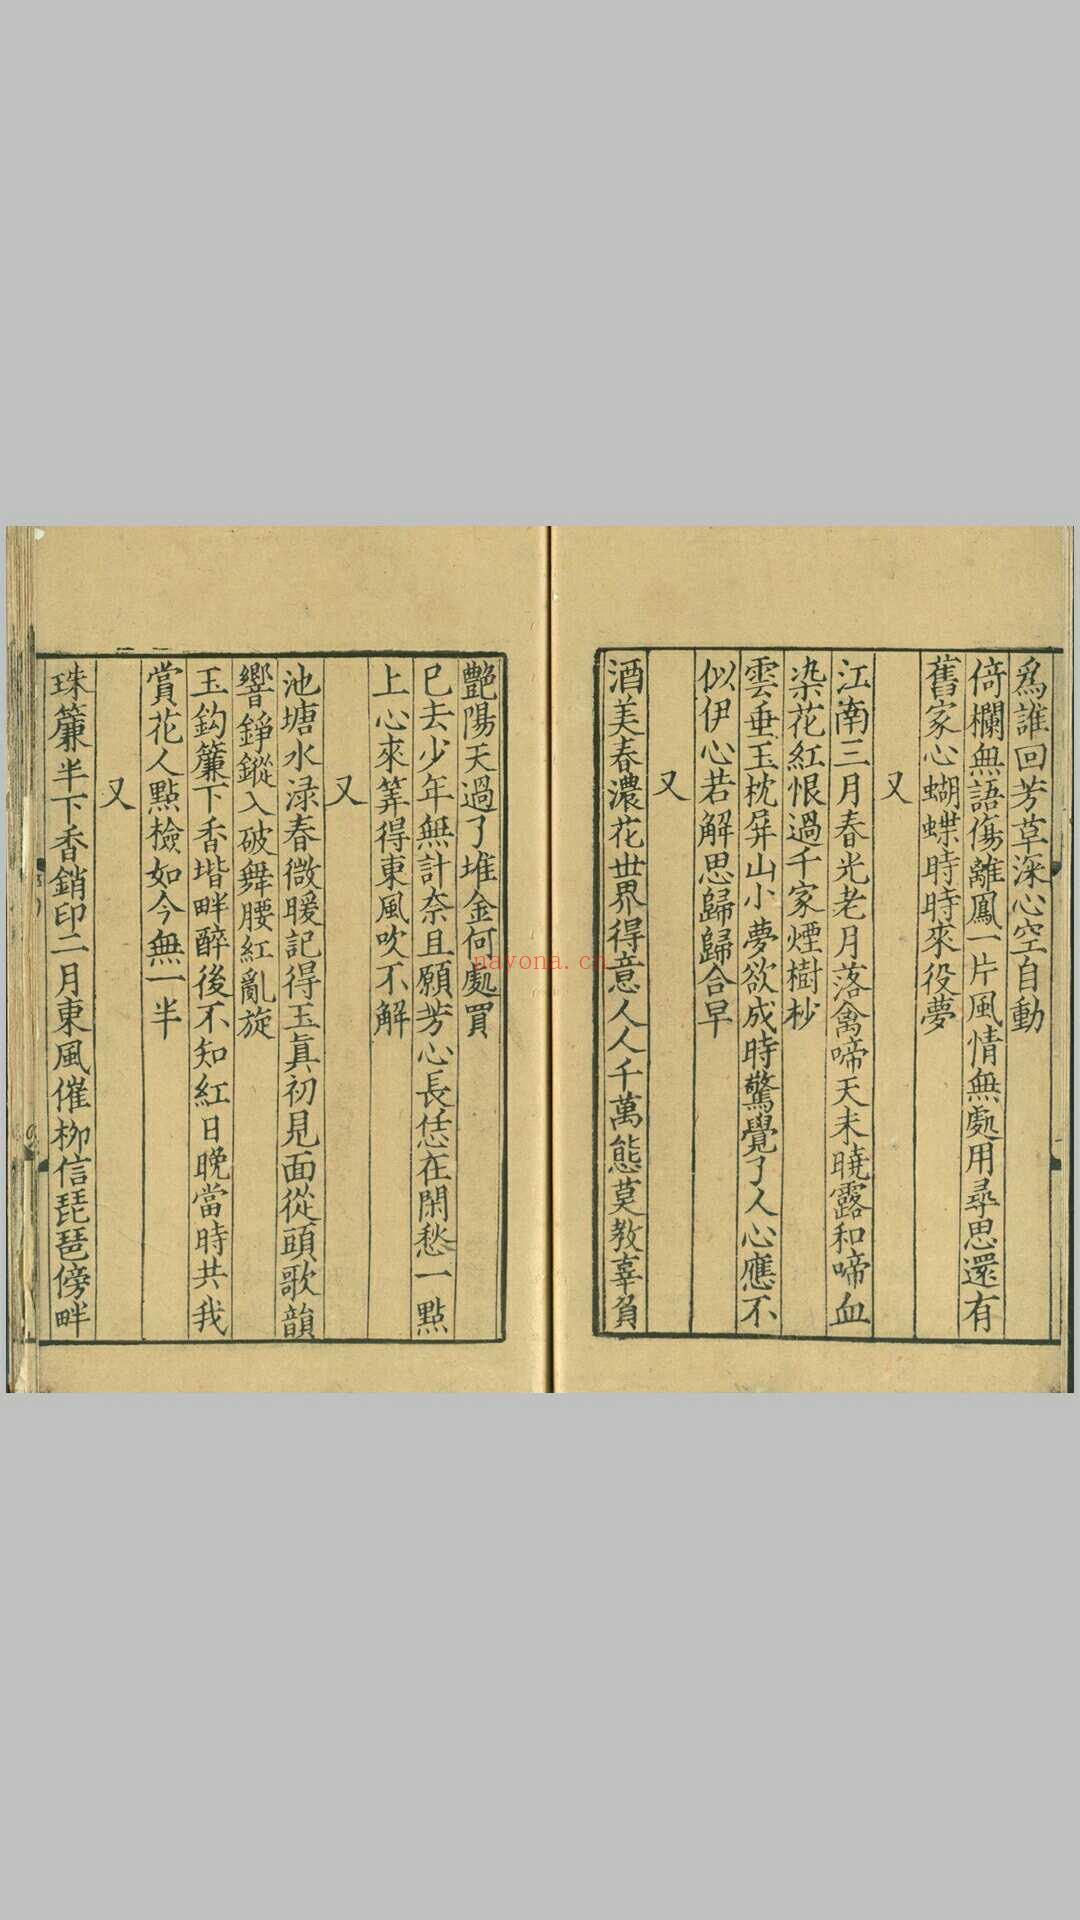 爲誰回芳草深心空自動
倚欄無語傷離鳳一片風情無處用尋思還有
舊家心蝴蝶時時來役夢
又
江南三月春光老月落禽啼天未曉露和啼血
染花紅恨過千家煙樹杪
雲垂玉枕屏山小夢欲成時驚覺了人心應不
似伊心若解思歸歸合早
又
酒美春濃花世界得意人人千萬態莫教辜負
艷陽天過了堆金何處買
已去少年無計奈且願芳心長恁在閑愁一點
上心來筭得東風吹不解
又
池塘水渌春微暖記得玉真初見面從頭歌韻
響錚鏦入破舞腰紅亂旋
玉鈎簾下香堦畔醉後不知紅日晚當時共我
賞花人點檢如今無一半
又
珠簾半下香銷印二月東風催柳信琵琶傍畔
nayona.cn